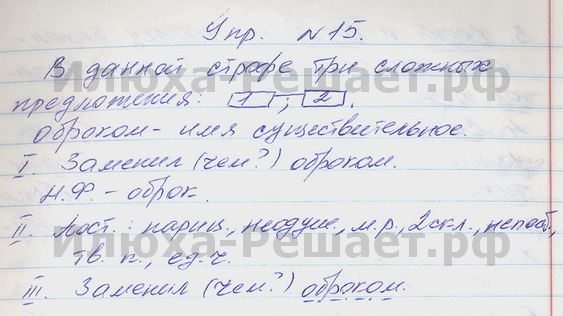 Упр. №15.
В данной строфе три сложных
предложения: [1]; [2].
оброком - имя существительное.
I. Заменил (чем?) оброком.
Н.Ф. - оброк.
II. Пост.: нариц., неодуш., м.р., 2 скл., непост.:
тв. п., ед.ч.
III. Заменил (чем?) оброком.
Илюха-Решает.рф
Илюха-Решает.рф